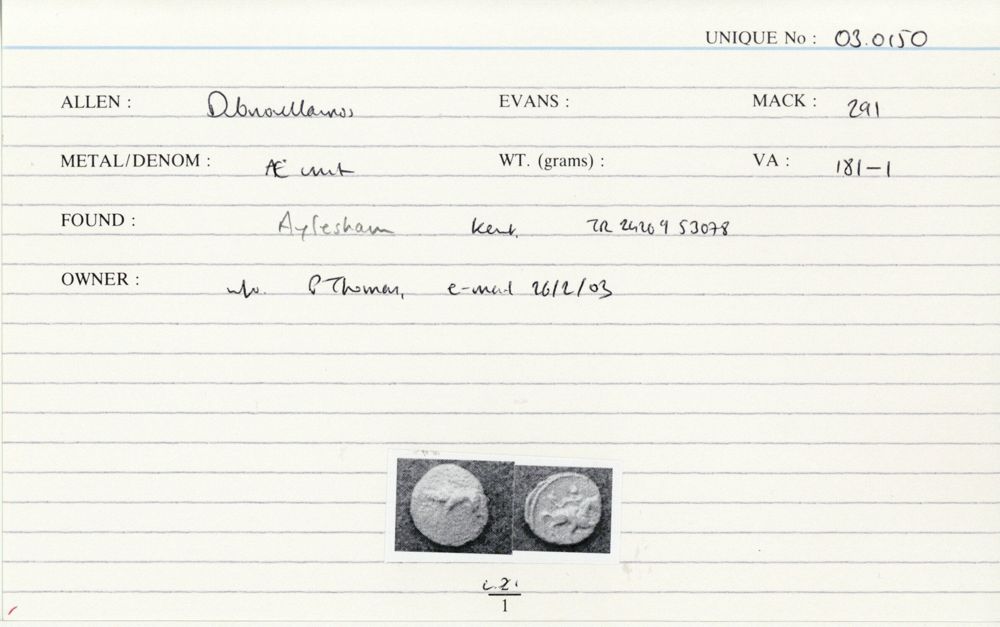 UNIQUE No : 03.0150
ALLEN : Dubnovellaunos EVANS : MACK : 291
METAL/DENOM : Æ unit WT. (grams) : VA : 181-1
FOUND : Aylesham Kent, TR 24209 53078
OWNER : info. P Thomas, e-mail 26/2/03
c.2.
1